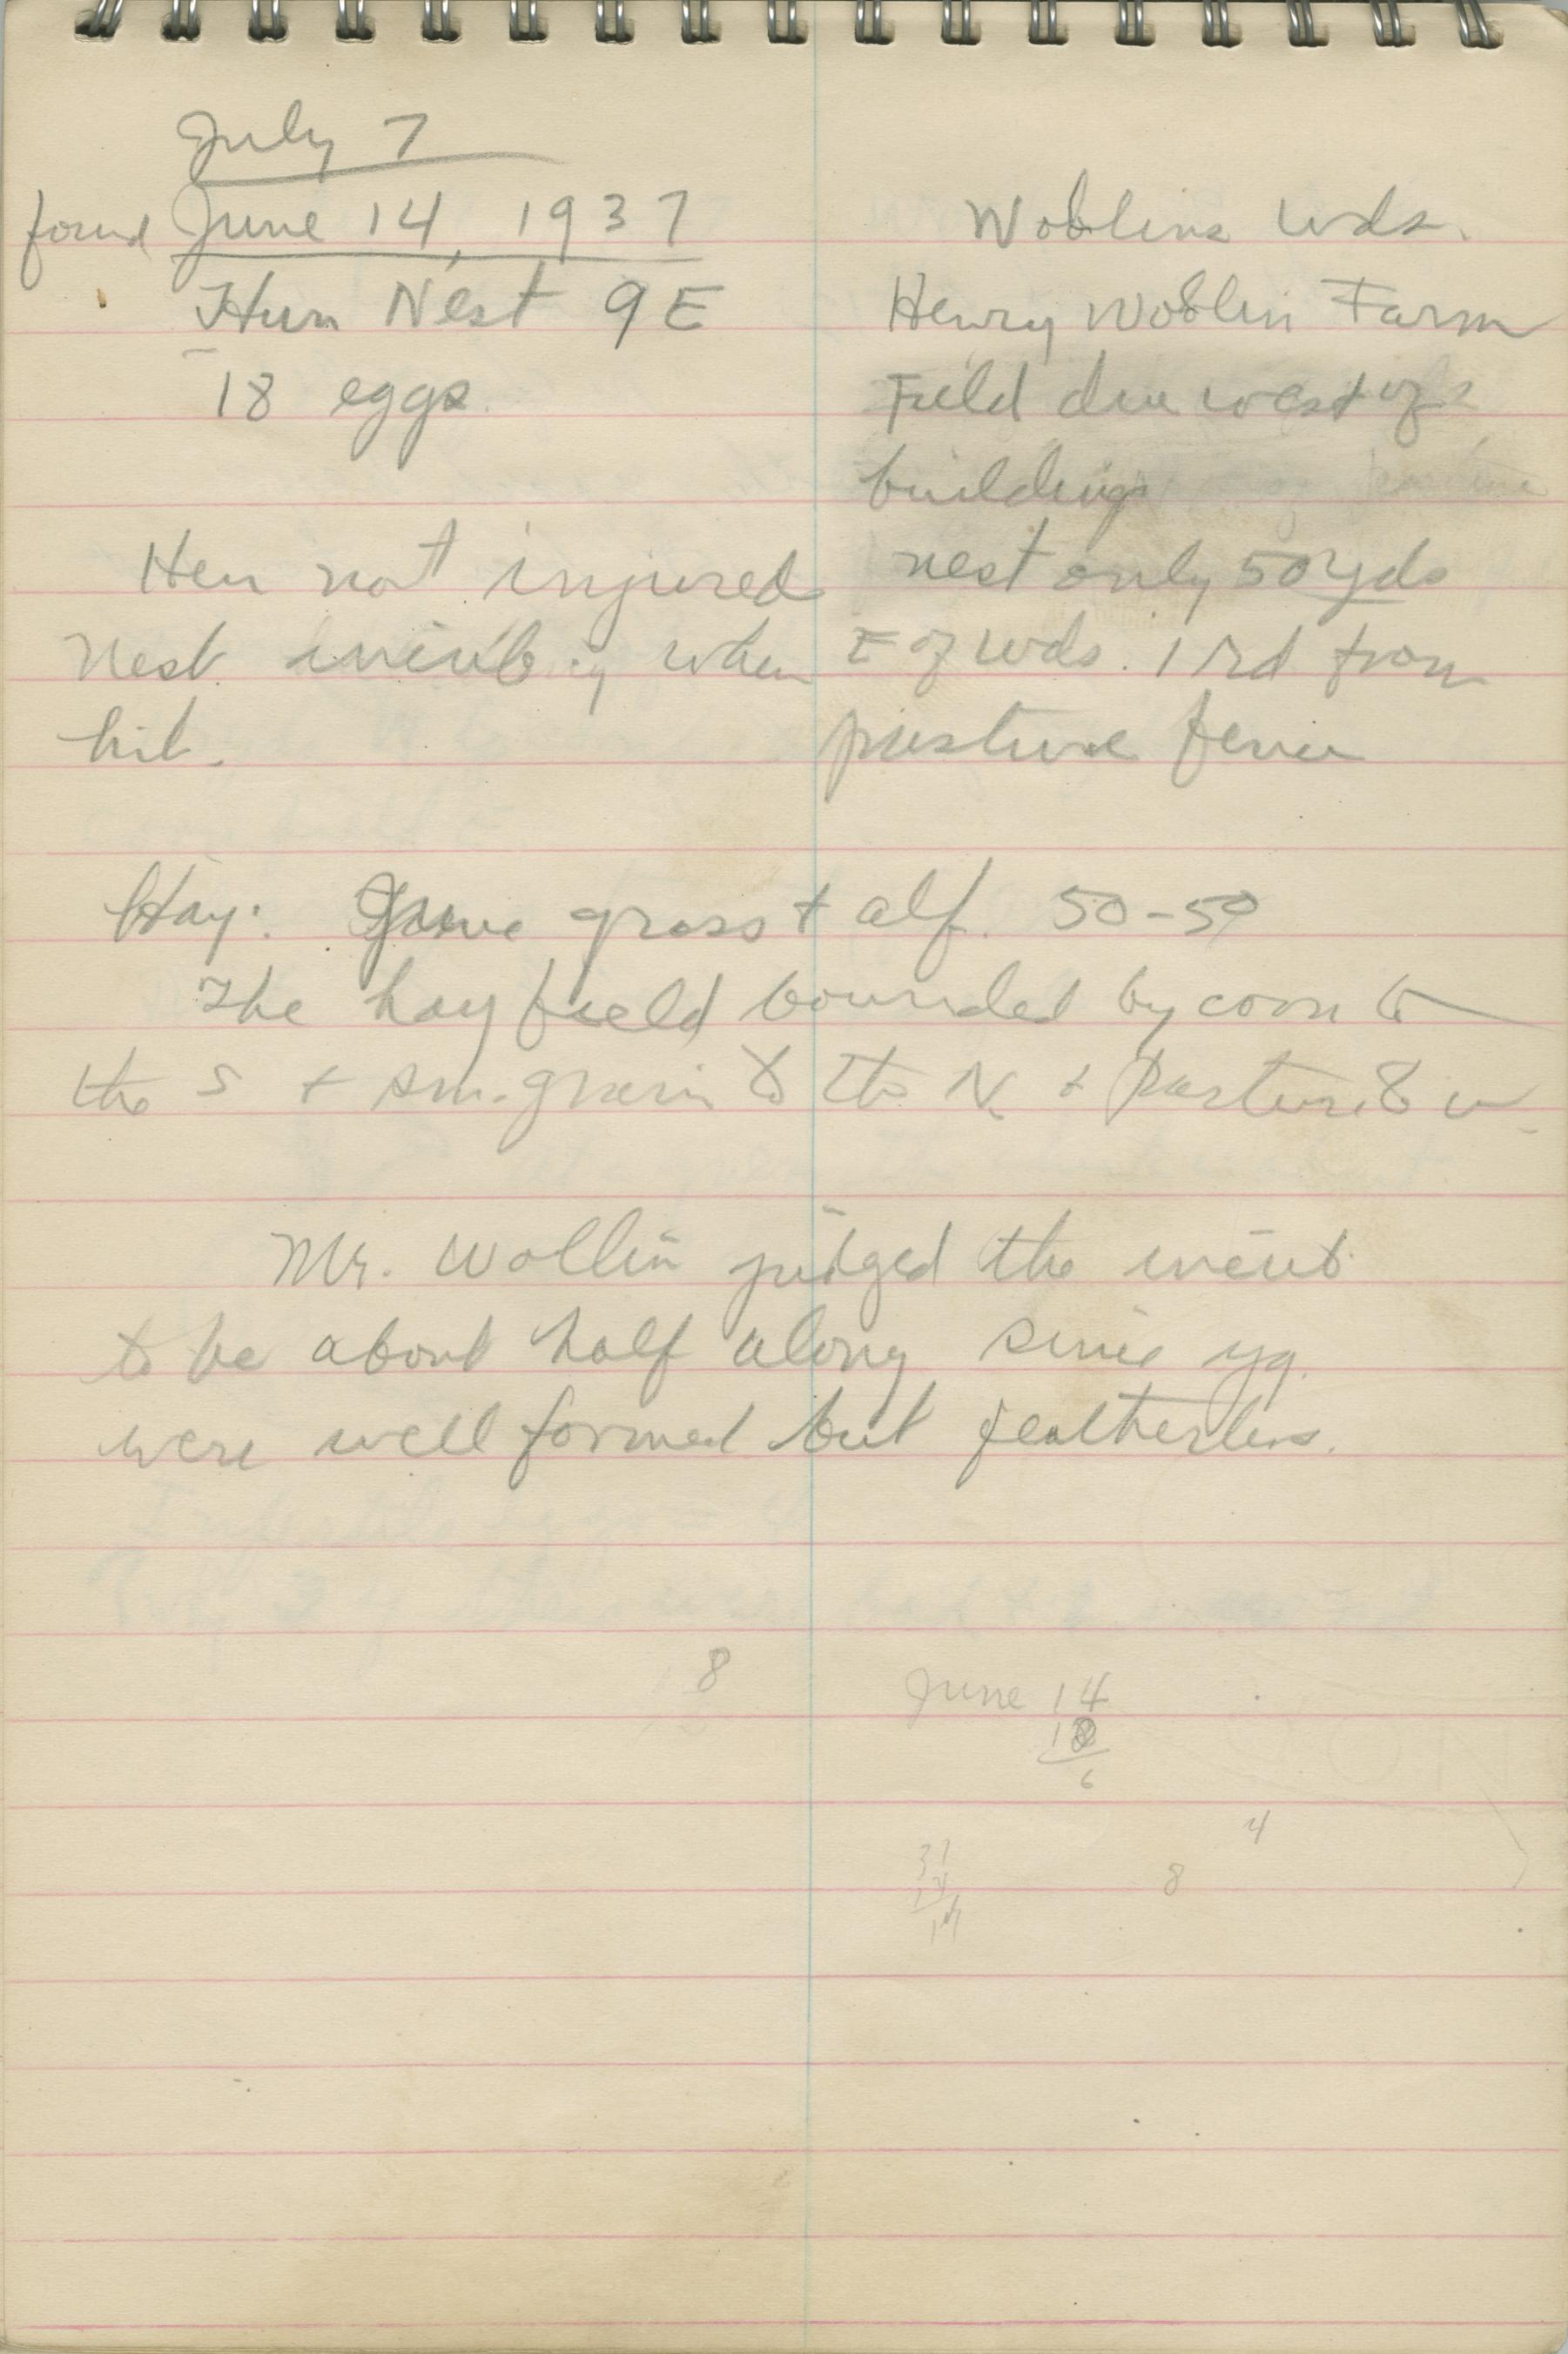 July 7
found June 14, 1937
Hun Nest 9E
18 eggs.
Wollins Wds.
Henry Wollin Farm
Field due west of
buildings
nest only 50 yds
E of wds. 1 rd from
pasture fence
Hen not injured
Nest incub. when
hit.
Hay: June grass + alf. 50-50
The hay field bounded by corn to
the S + sm. grain to the N + pasture to W.
Mr. Wollin judged the incub.
to be about half along since yg.
were well formed but featherless.
8
June 14
6
4
31
8